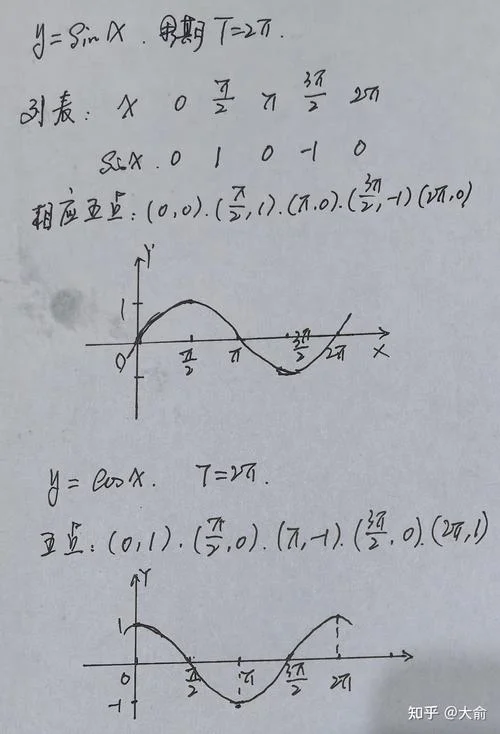 y=sinx.周期T=2π.
列表: x 0 π/2 π 3π/2 2π
sinx. 0 1 0 -1 0
相应五点:(0,0).(π/2,1).(π,0).(3π/2,-1)(2π,0)
Y
1
0 π/2 π 3π/2 2π X
y=cosx. T=2π.
五点:(0,1).(π/2,0).(π,-1).(3π/2,0).(2π,1)
Y
1
0 π/2 π 3π/2 2π
-1
知乎 @大俞